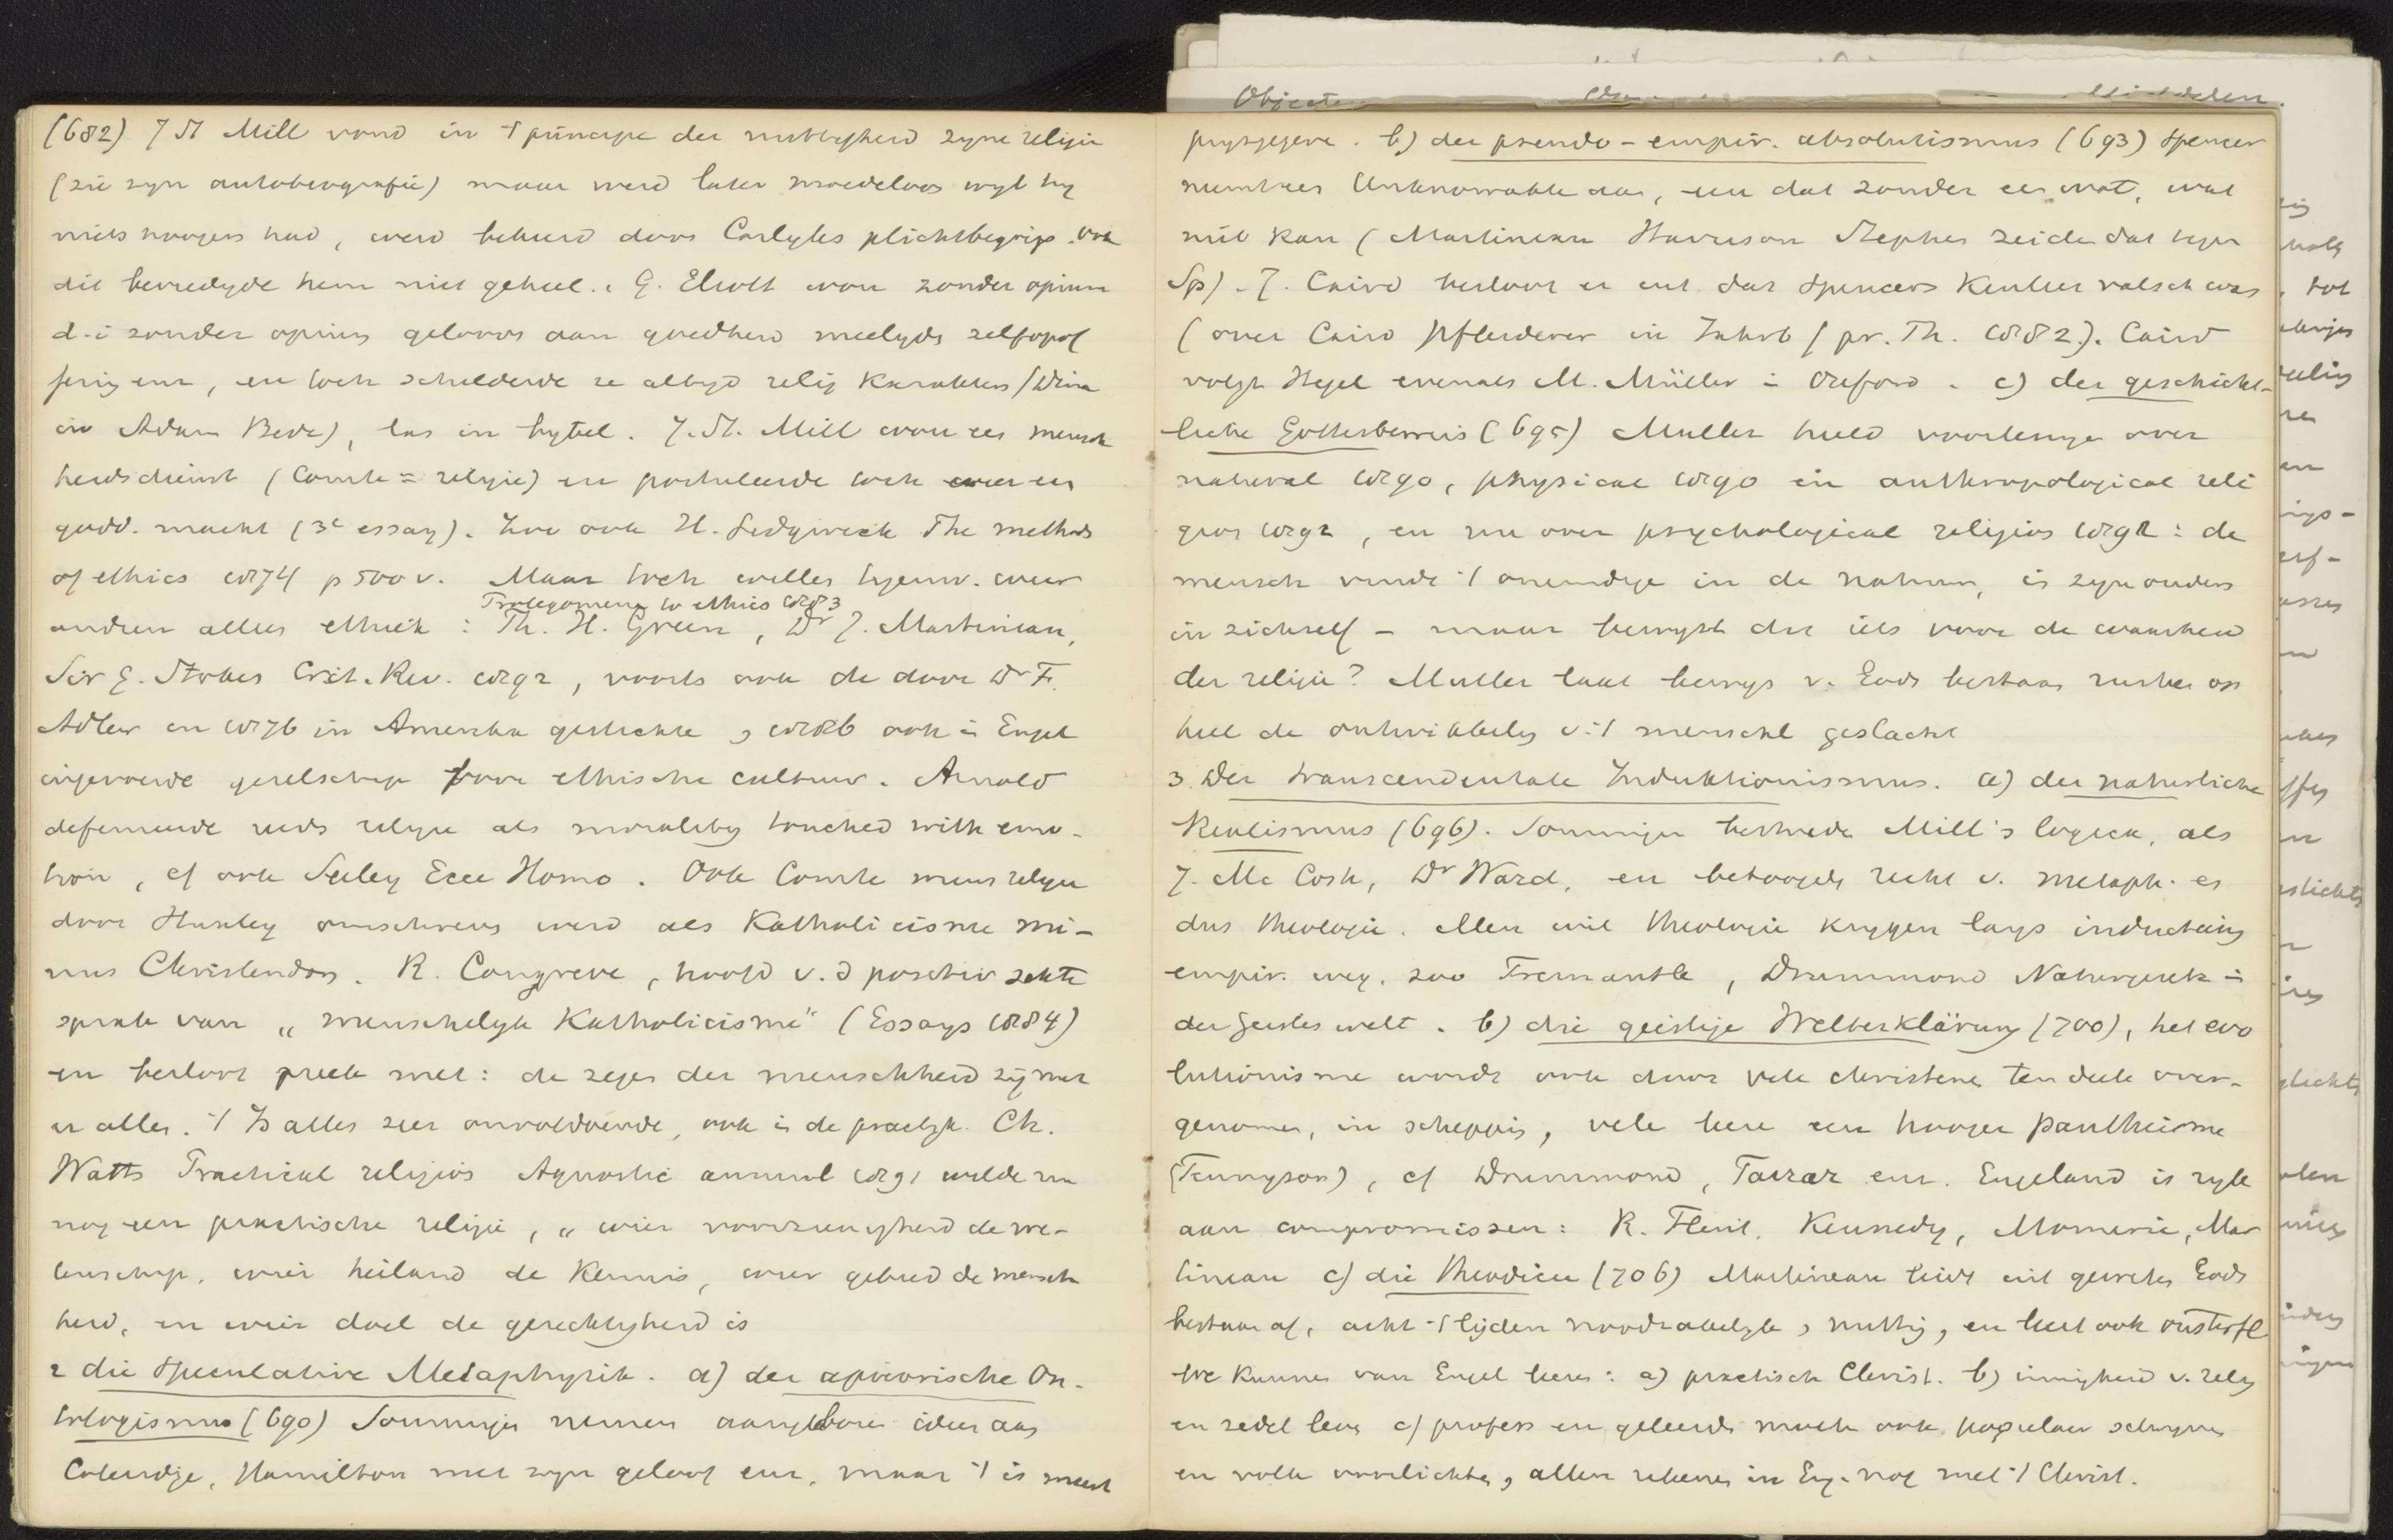 (682) J St Mill vond in 't principe der nuttigheid zyne religie
(zie zyn autobiografie) maar werd later moedeloos wyl hy
niets hoogers had, werd bekeerd door Carlyles plichtsbegrip. ook
dit bevredigde hem niet geheel. G. Eliott wou zonder opium
d.i zonder opium gelooven aan goedheid meelyde zelfopof
fering enz, en toch schilderde ze altyd relig karakters (Dina
in Adam Bede), las in bybel. J. St. Mill wou een mensch
heidsdienst (Comte = religie) en postuleerde toch weer een
godd. macht (3e essay). Zoo ook H. Sidgwick The methods
of ethics 1874 p 500 v. Maar toch willen tegenw. weer
Prolegomena to ethics 1883
andren alleen ethiek : Th. H. Green, Dr J. Martineau,
Sir G. Stokes Crit. Rev. 1892, voorts ook de door Dr F.
Adler in 1876 in Amerika gestichte, 1886 ook in Engel
ingevoerde gezelschap voor ethische cultuur. Arnold
definieerde reeds religie als morality touched with emo-
tion, cf ook Seeley Ecce Homo. Ook Comte wiens religie
door Huxley omschreven werd als Katholicisme mi-
nus Christendom. R. Congreve, hoofd v. d positiv sekte
sprak van „menschelijk Katholicisme" (Essays 1884)
en besloot preek met: de zegen der menschheid zij met
u allen. 't Is alles zeer onvoldoende, ook in de praktyk. Ch.
Watts Practical religion Agnostic annual 1891 wilde nu
nog een practische religie, „wier voorzienigheid de we-
tenschap, wier heiland de Kennis, wier gebed de mensch
heid, en wier doel de gerechtigheid is
2 die speculative Metaphysik. a) der apriorische On-
tologismus (690) Sommigen nemen aangeboren ideen aan
Coleridge, Hamilton met zyn geloof enz, maar 't is meest
Objecten
prysgegeven. b) der pseudo-empir. absolutismus (693) Spencer
neemt een Unknowable aan, en dat zonder eenig wat, wat
niet kan (Martineau Harrison Stephen zeiden dat tegen
Sp). J. Caird betoont er uit dat Spencers Kenleer valsch was
(over Caird Pfleiderer in Jahrb f pr. Th. 1882). Caird
volgt Hegel evenals M. Müller in Oxford. c) der geschicht-
liche Gottesbeweis (695) Muller hield voorlezingen over
natural 1890, physical 1890 en anthropological reli
gion 1892, en nu over psychological religion 1892: de
mensch vindt 't oneindige in de natuur, in zyn ouders
in zichzelf – maar bewyst dit iets voor de waarheid
der religie? Muller laat bewys v. Gods bestaan rusten op
heel de ontwikkeling v. 't menschl geslacht
3. Der transcendentale Induktionismus. a) der natürliche
Realismus (696). Sommigen bestreden Mill's logica, als
J. Mc Cosh, Dr Ward, en betoogden recht v. metaph. en
dus theologie. Men wil theologie krygen langs inductieven
empir. weg, zoo Fremantle, Drummond Naturgesetz in
der Geistes welt. b) die geistige Welterklärung (700), het evo
lutionisme wordt ook door vele christenen ten deele over-
genomen, in schepping, vele leeren een hooger pantheisme
(Tennyson), cf Drummond, Farrar enz. Engeland is ryk
aan compromissen: R. Flint, Kennedy, Momerie, Mar
tineau c) die Theodicee (706) Martineau leidt uit geweten Gods
bestaan af, acht 't lijden noodzakelyk, nuttig, en leert ook onsterfl
We kunnen van Engel leeren: a) practisch Christ. b) innigheid v. relig
en zedel leven c) profess en geleerde moeten ook populair schryven
en volk voorlichten, allen rekenen in Eng. nog met 't Christ.